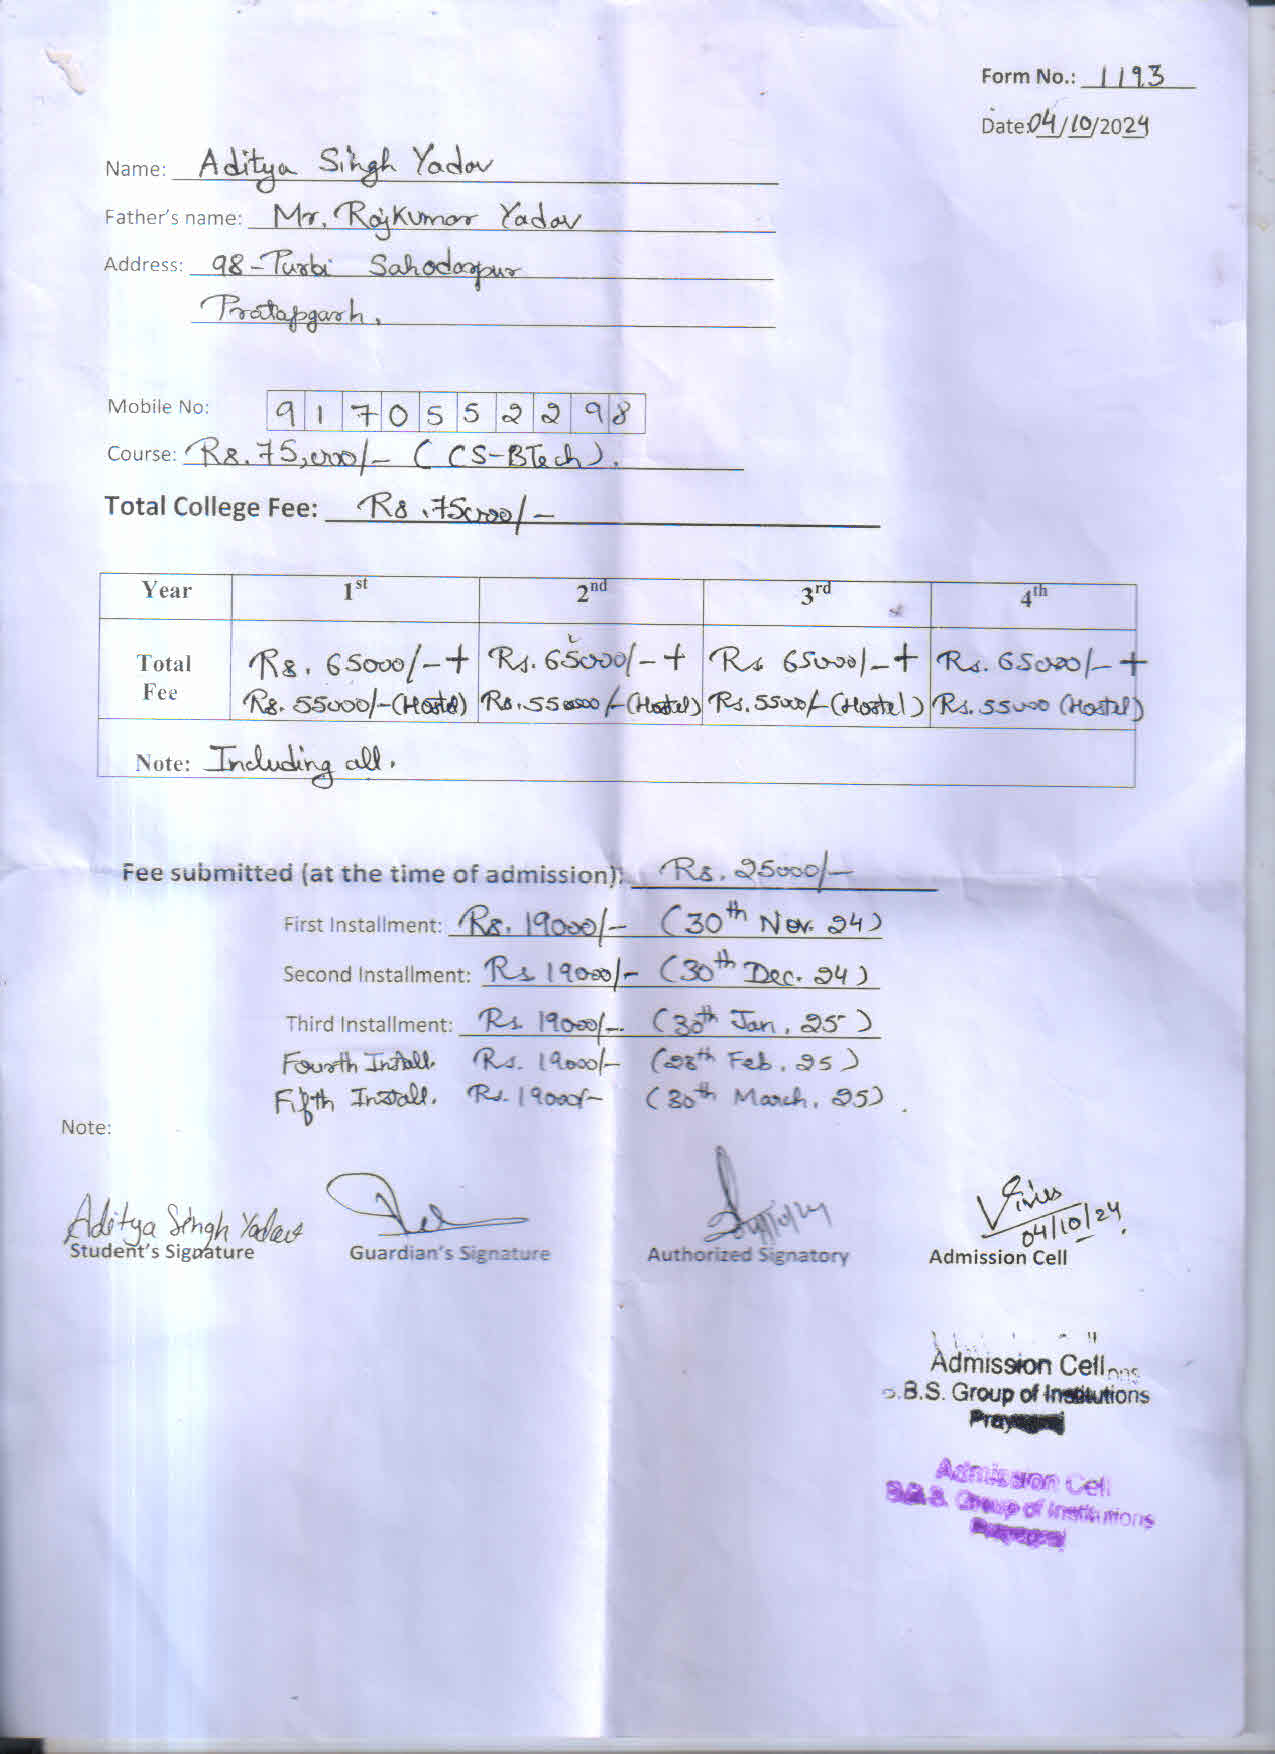 Form No.: 1193
Date: 04/10/2024
Name: Aditya Singh Yadav
Father's name: Mr. Rajkumar Yadav
Address: 98-Purbi Sahodarpur
Pratapgarh.
Mobile No: 9170552298
Course: Rs. 75,000/- (CS-BTech).
Total College Fee: Rs. 75000/-
Year 1st 2nd 3rd 4th
Total Fee Rs. 65000/-+ Rs. 65000/-+ Rs. 65000/-+ Rs. 65000/-+
Rs. 55000/-(Hostel) Rs. 55000/-(Hostel) Rs. 55000/-(Hostel) Rs. 55000 (Hostel)
Note: Including all.
Fee submitted (at the time of admission): Rs. 25000/-
First Installment: Rs. 19000/- (30th Nov. 24)
Second Installment: Rs 19000/- (30th Dec. 24)
Third Installment: Rs. 19000/-. (30th Jan. 25)
Fourth Install. Rs. 19000/- (28th Feb. 25)
Fifth Install. Rs. 19000/- (30th March. 25).
Note:
Aditya Singh Yadav
04/10/24
Student's Signature Guardian's Signature Authorized Signatory Admission Cell
Admission Cell
B.S. Group of Institutions
Admission Cell
Group of Institutions